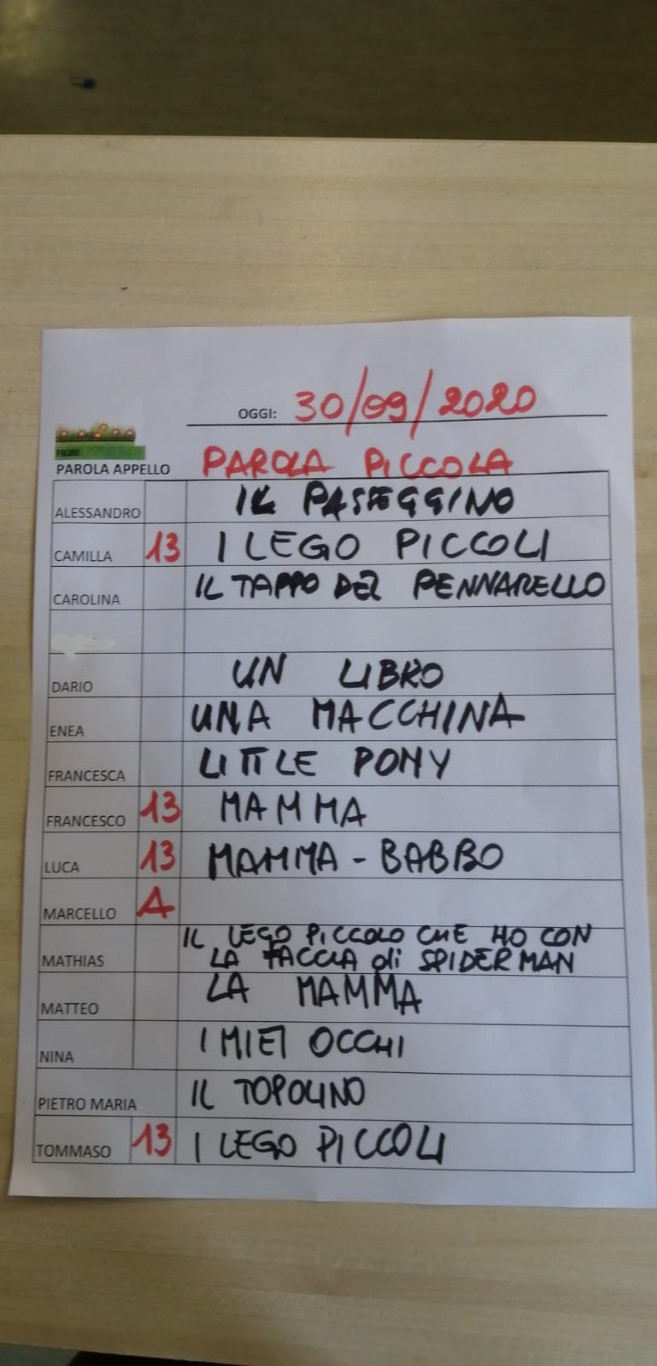 OGGI: 30/09/2020
PAROLA APPELLO PAROLA PICCOLA
ALESSANDRO IL PASEGGINO
CAMILLA 13 I LEGO PICCOLI
CAROLINA IL TAPPO DEL PENNARELLO
DARIO UN LIBRO
ENEA UNA MACCHINA
FRANCESCA LITTLE PONY
FRANCESCO 13 MAMMA
LUCA 13 MAMMA - BABBO
MARCELLO A
IL LEGO PICCOLO CHE HO CON
MATHIAS LA FACCIA di SPIDERMAN
MATTEO LA MAMMA
NINA I MIEI OCCHI
PIETRO MARIA IL TOPOLINO
TOMMASO 13 I LEGO PICCOLI